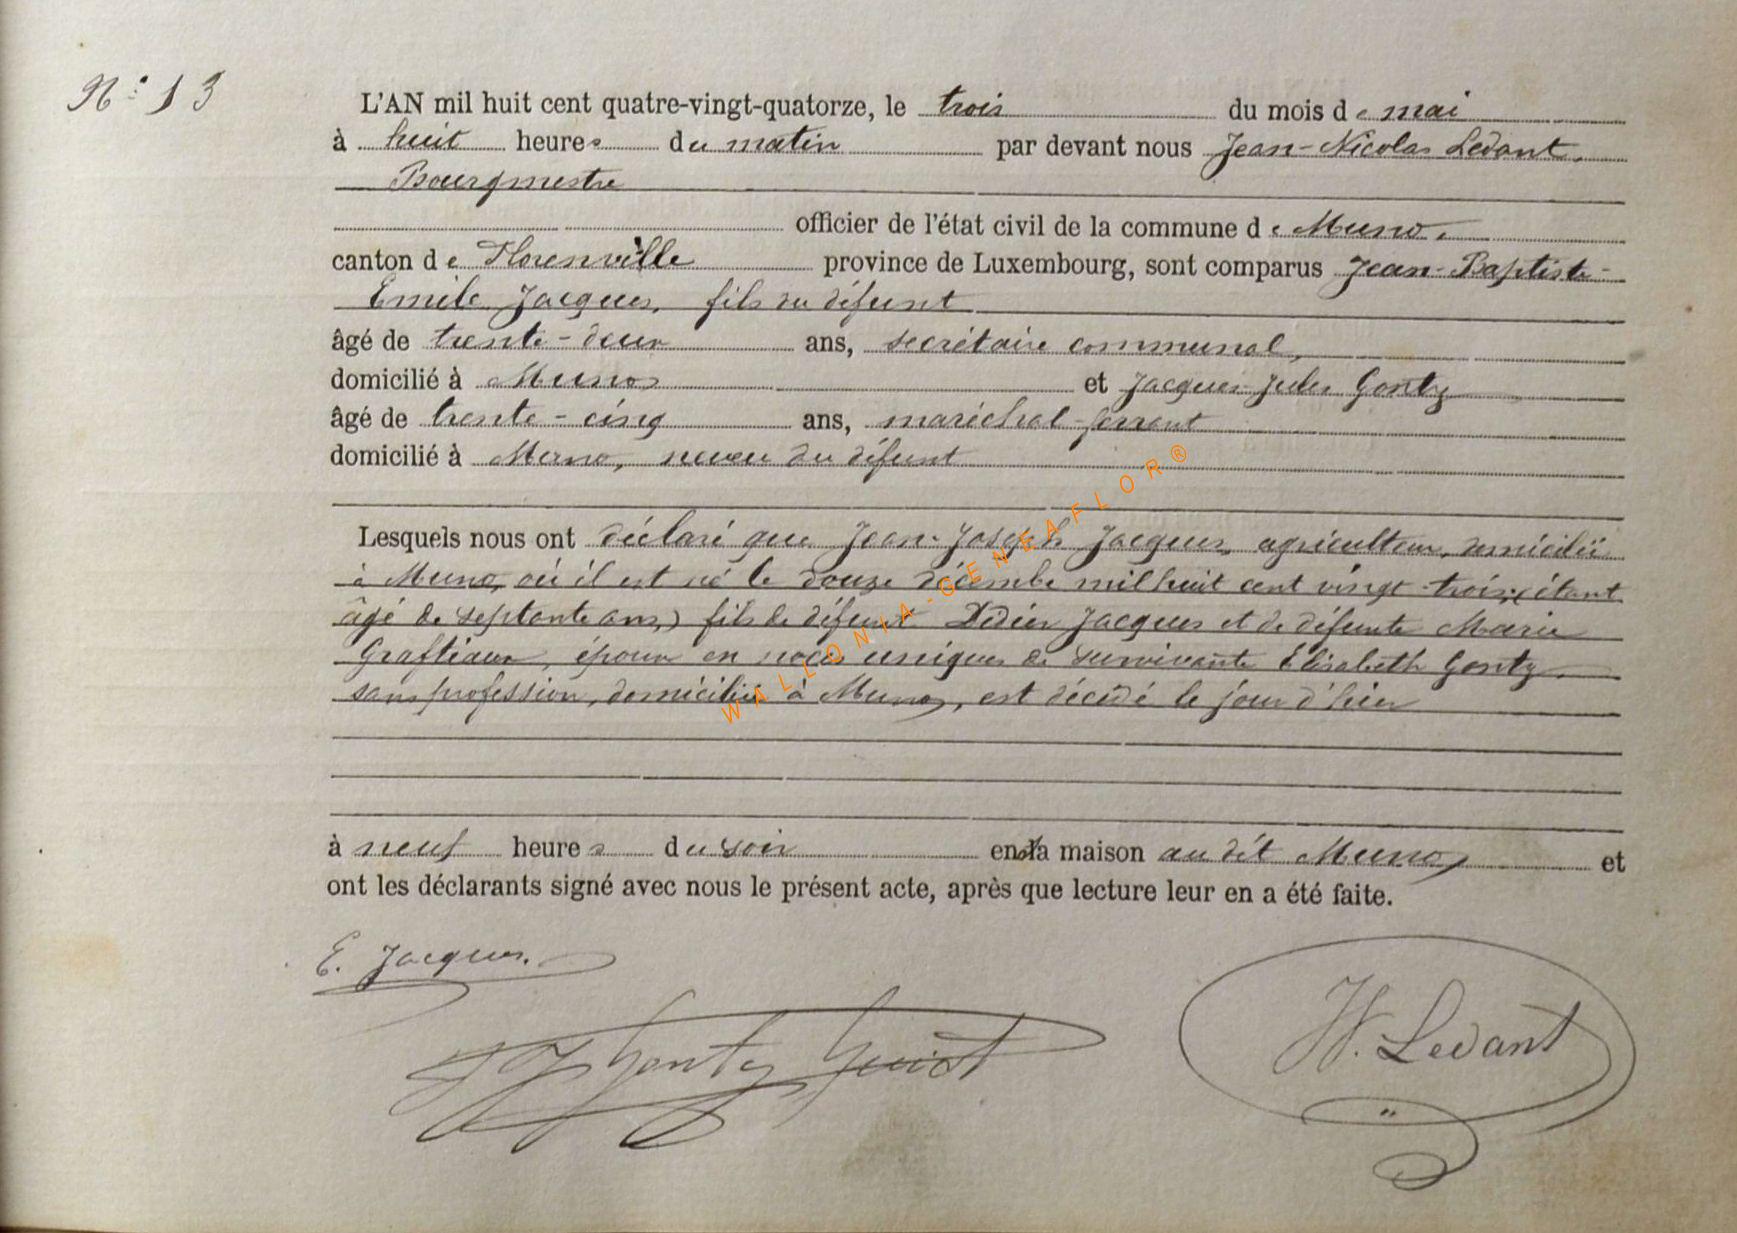 N° 13
L'AN mil huit cent quatre-vingt-quatorze, le trois du mois de mai
à huit heures du matin par devant nous Jean-Nicolas Ledant,
Bourgmestre
officier de l'état civil de la commune de Muno,
canton de Florenville province de Luxembourg, sont comparus Jean-Baptiste-
Emile Jacques, fils du défunt
âgé de trente-deux ans, secrétaire communal,
domicilié à Muno et Jacques Jules Gontz
âgé de trente-cinq ans, maréchal-ferrant
domicilié à Muno, neveu du défunt
Lesquels nous ont déclaré que Jean-Joseph Jacques, agriculteur, domicilié
à Muno, où il est né le douze décembre mil huit cent vingt-trois, (étant
âgé de septante ans,) fils de défunt Didier Jacques et de défunte Marie
Grafteaux, époux en noces uniques de survivante Elisabeth Gonty,
sans profession, domiciliée à Muno, est décédé le jour d'hier
à neuf heures du soir en sa maison au dit Muno, et
ont les déclarants signé avec nous le présent acte, après que lecture leur en a été faite.
E. Jacques.
JJ Gonty Guiot
N. Ledant
WALLONIA-GENEAFLOR®